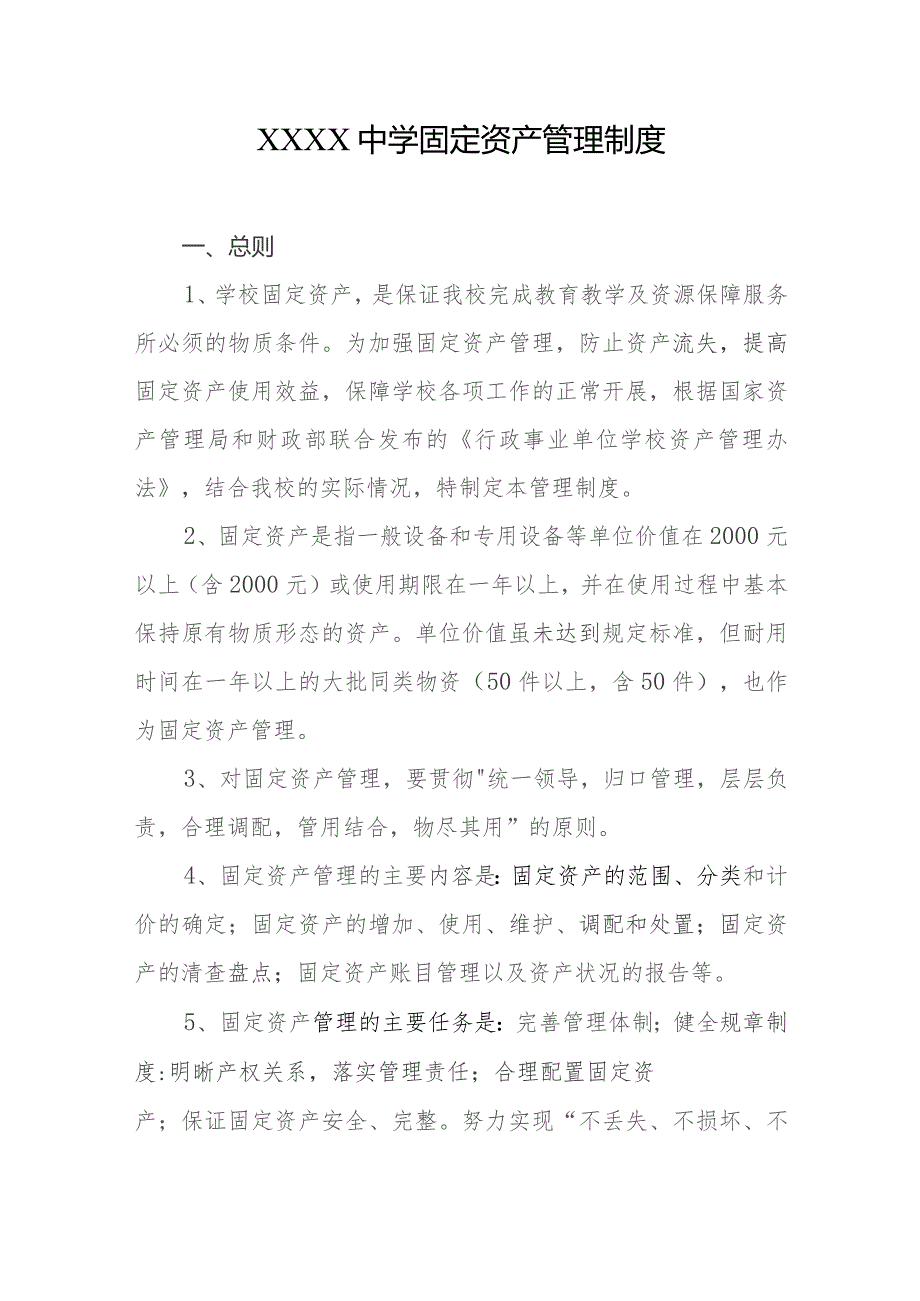 XXXX中学固定资产管理制度
一、总则
1、学校固定资产,是保证我校完成教育教学及资源保障服务
所必须的物质条件。为加强固定资产管理,防止资产流失,提高
固定资产使用效益,保障学校各项工作的正常开展,根据国家资
产管理局和财政部联合发布的《行政事业单位学校资产管理办
法》,结合我校的实际情况,特制定本管理制度。
2、固定资产是指一般设备和专用设备等单位价值在2000元
以上(含2000元)或使用期限在一年以上,并在使用过程中基本
保持原有物质形态的资产。单位价值虽未达到规定标准,但耐用
时间在一年以上的大批同类物资(50件以上,含50件),也作
为固定资产管理。
3、对固定资产管理,要贯彻"统一领导,归口管理,层层负
责,合理调配,管用结合,物尽其用”的原则。
4、固定资产管理的主要内容是:固定资产的范围、分类和计
价的确定;固定资产的增加、使用、维护、调配和处置;固定资
产的清查盘点;固定资产账目管理以及资产状况的报告等。
5、固定资产管理的主要任务是:完善管理体制;健全规章制
度:明晰产权关系,落实管理责任;合理配置固定资
产;保证固定资产安全、完整。努力实现“不丢失、不损坏、不